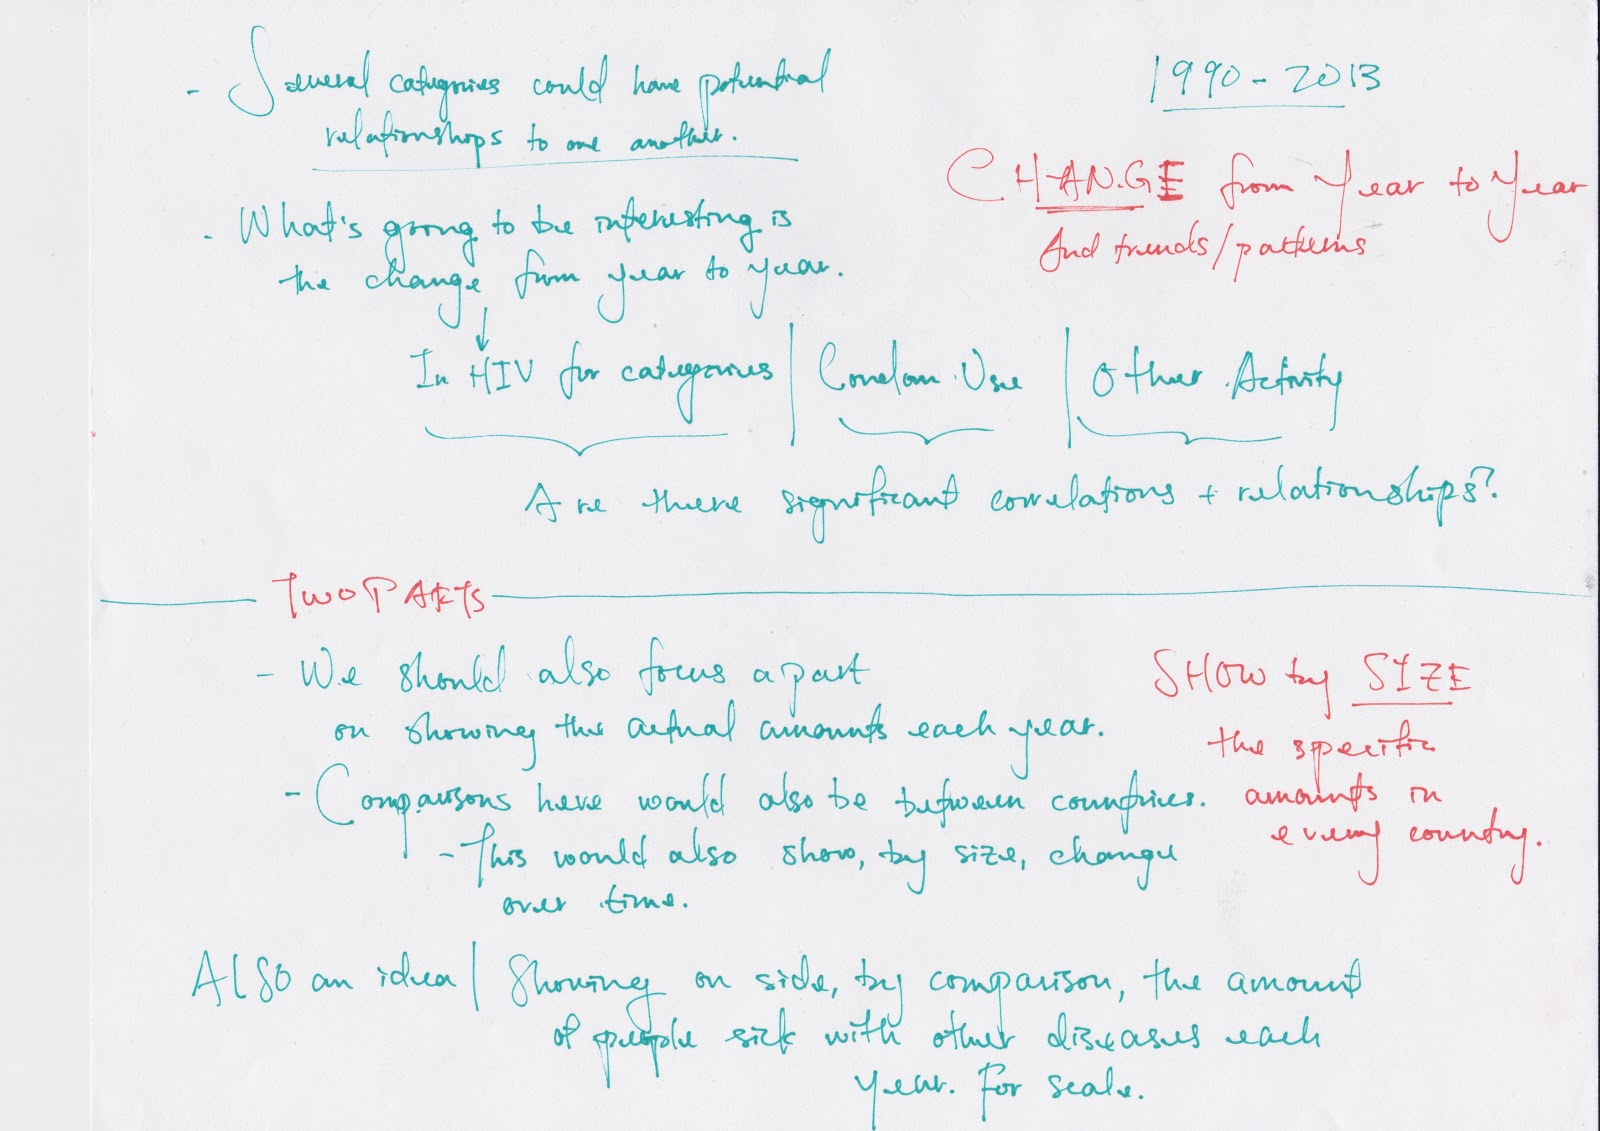 - Several categories could have potential
relationships to one another.
1990-2013
CHANGE from Year to Year
And trends/patterns
- What's going to be interesting is
the change from year to year.
In HIV for categories | Condom Use | Other Activity
Are there significant correlations + relationships?
TWO PARTS
- We should also focus a part
on showing the actual amounts each year.
- Comparisons here would also be between countries.
- This would also show, by size, change
over time.
SHOW by SIZE
the specific
amounts in
every country.
ALSO an idea | Showing on side, by comparison, the amount
of people sick with other diseases each
year. For scale.